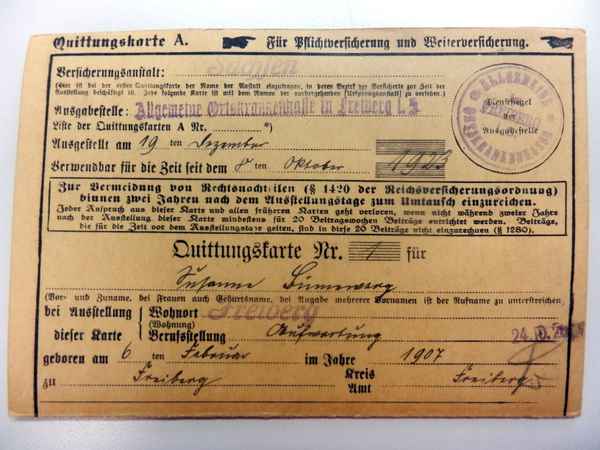 Quittungskarte A. Für Pflichtversicherung und Weiterversicherung.
Versicherungsanstalt: Sachsen
(Hier ist bei der ersten Quittungskarte der Name der Anstalt einzutragen, in deren Bezirk der Versicherte zur Zeit der
Ausstellung beschäftigt ist. Jede folgende Karte ist mit dem Namen der vorhergehenden (Ursprungsanstalt) zu versehen.)
Ausgabestelle: Allgemeine Ortskrankenkasse in Freiberg i. S.
Liste der Quittungskarten A Nr. *)
Ausgestellt am 19 ten Dezember
Verwendbar für die Zeit seit dem 8 ten Oktober 1923
ALLGEMEINE ORTSKRANKENKASSE
FREIBERG
Dienstsiegel
der
Ausgabestelle
Zur Vermeidung von Rechtsnachteilen (§ 1420 der Reichsversicherungsordnung)
binnen zwei Jahren nach dem Ausstellungstage zum Umtausch einzureichen.
Jeder Anspruch aus dieser Karte und allen früheren Karten geht verloren, wenn nicht während zweier Jahre
nach der Ausstellung dieser Karte mindestens für 20 Beitragswochen Beiträge entrichtet werden. Beiträge,
die für die Zeit vor dem Ausstellungstage gelten, sind in diese 20 Beiträge nicht einzurechnen (§ 1280).
Quittungskarte Nr. 1 für
Susanne
(Vor- und Zuname, bei Frauen auch Geburtsname, bei Angabe mehrerer Vornamen ist der Rufname zu unterstreichen)
bei Ausstellung Wohnort Freiberg
(Wohnung)
dieser Karte Berufsstellung Aufwartung
geboren am 6 ten Februar im Jahre 1907
zu Freiberg Kreis Amt Freiberg